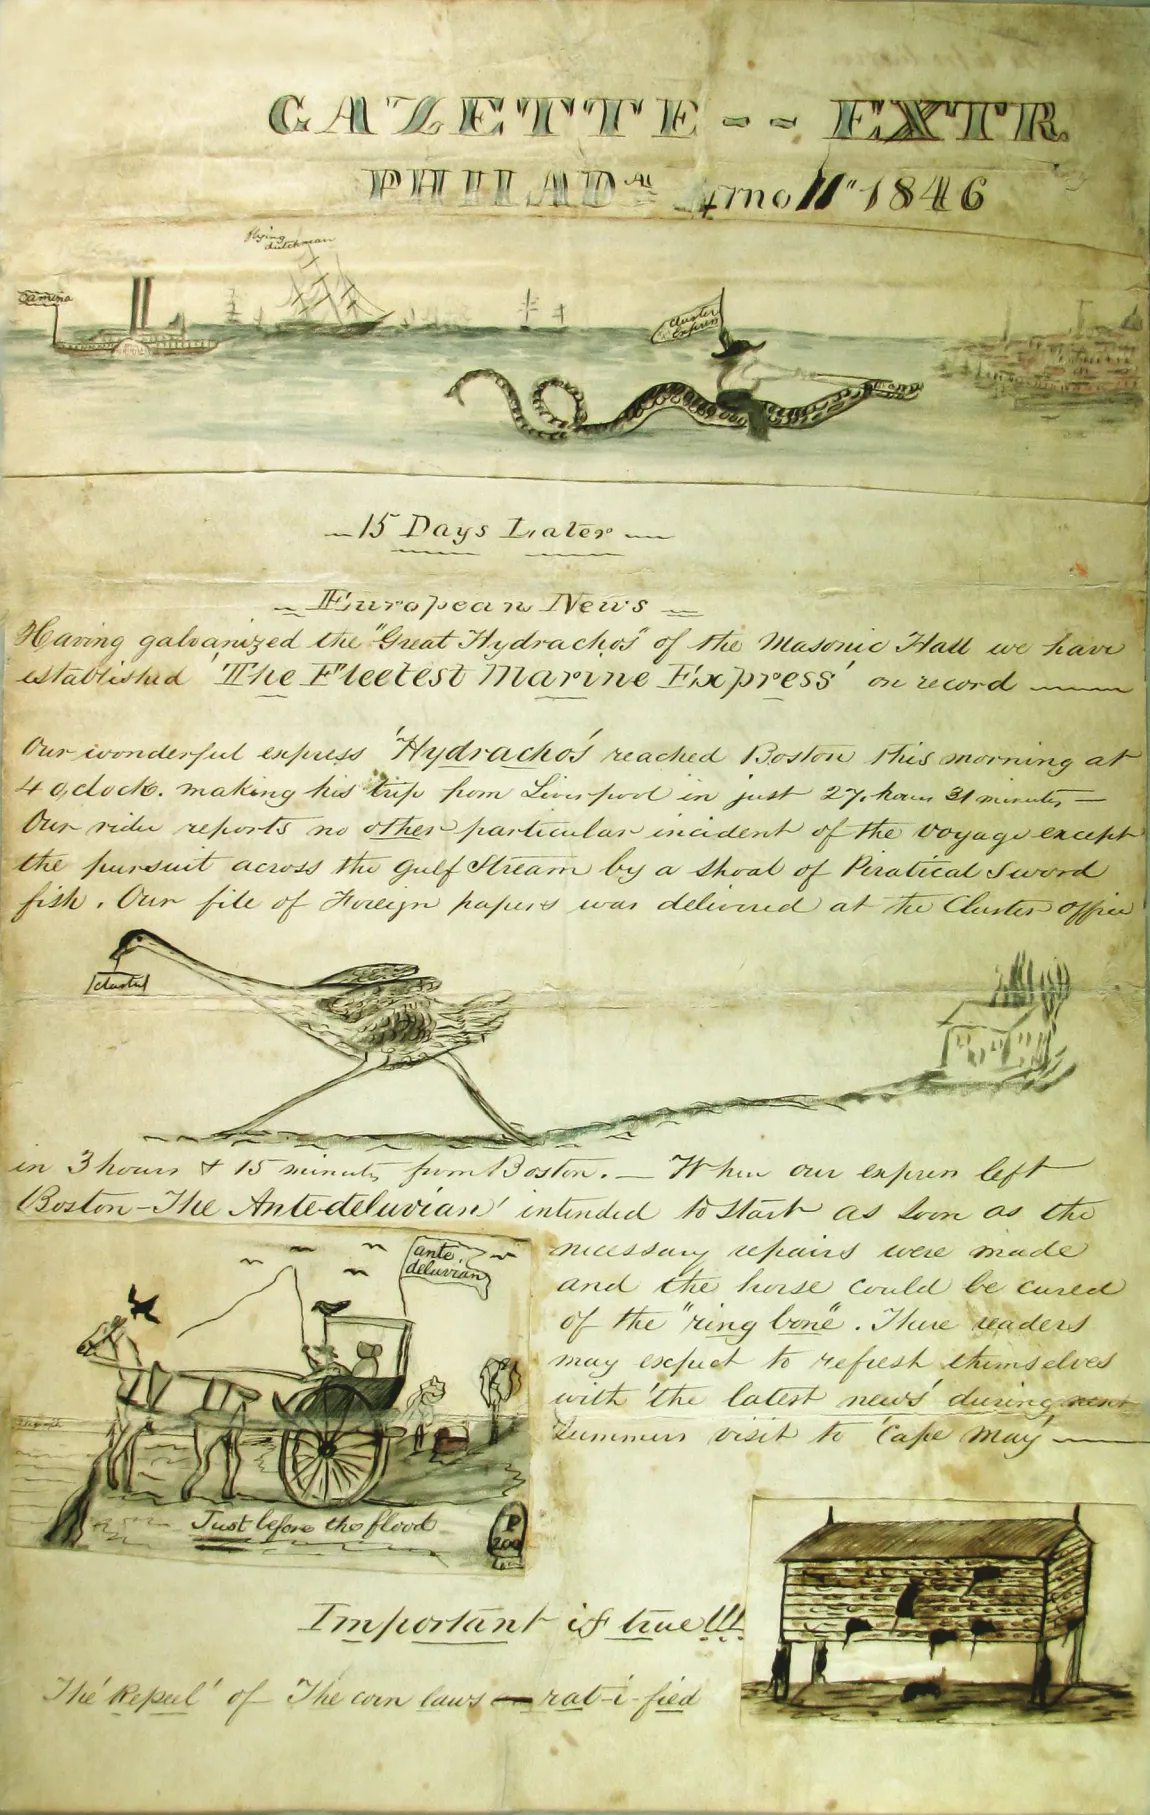 GAZETTE -- EXTR.
PHILADA Anno 11" 1846
Flying
dutchman
Cluster
Express
15 Days Later
European News
Having galvanized the "Great Hydrachos" of the Masonic Hall we have
established 'The Fleetest Marine Express' on record
Our wonderful express 'Hydrachos' reached Boston this morning at
4 o,clock. making his trip from Liverpool in just 27. hours 31 minutes —
Our rider reports no other particular incident of the voyage except
the pursuit across the Gulf Stream by a shoal of Piratical Sword
fish. Our file of Foreign papers was delivered at the Cluster office
Cluster
in 3 hours & 15 minutes from Boston. — When our express left
Boston - The Ante-deluvian' intended to start as soon as the
necessary repairs were made
and the horse could be cured
of the "ring bone". There readers
may expect to refresh themselves
with 'the latest news' during next
Summers visit to 'Cape May'
ante
deluvian
Just before the flood
P
200
Important if true!!!
The 'Repeel' of The corn laws rat-i-fied